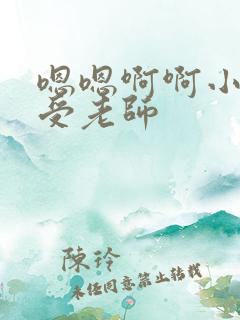 嗯嗯啊啊小
受老師
陳玲
未经同意禁止转载